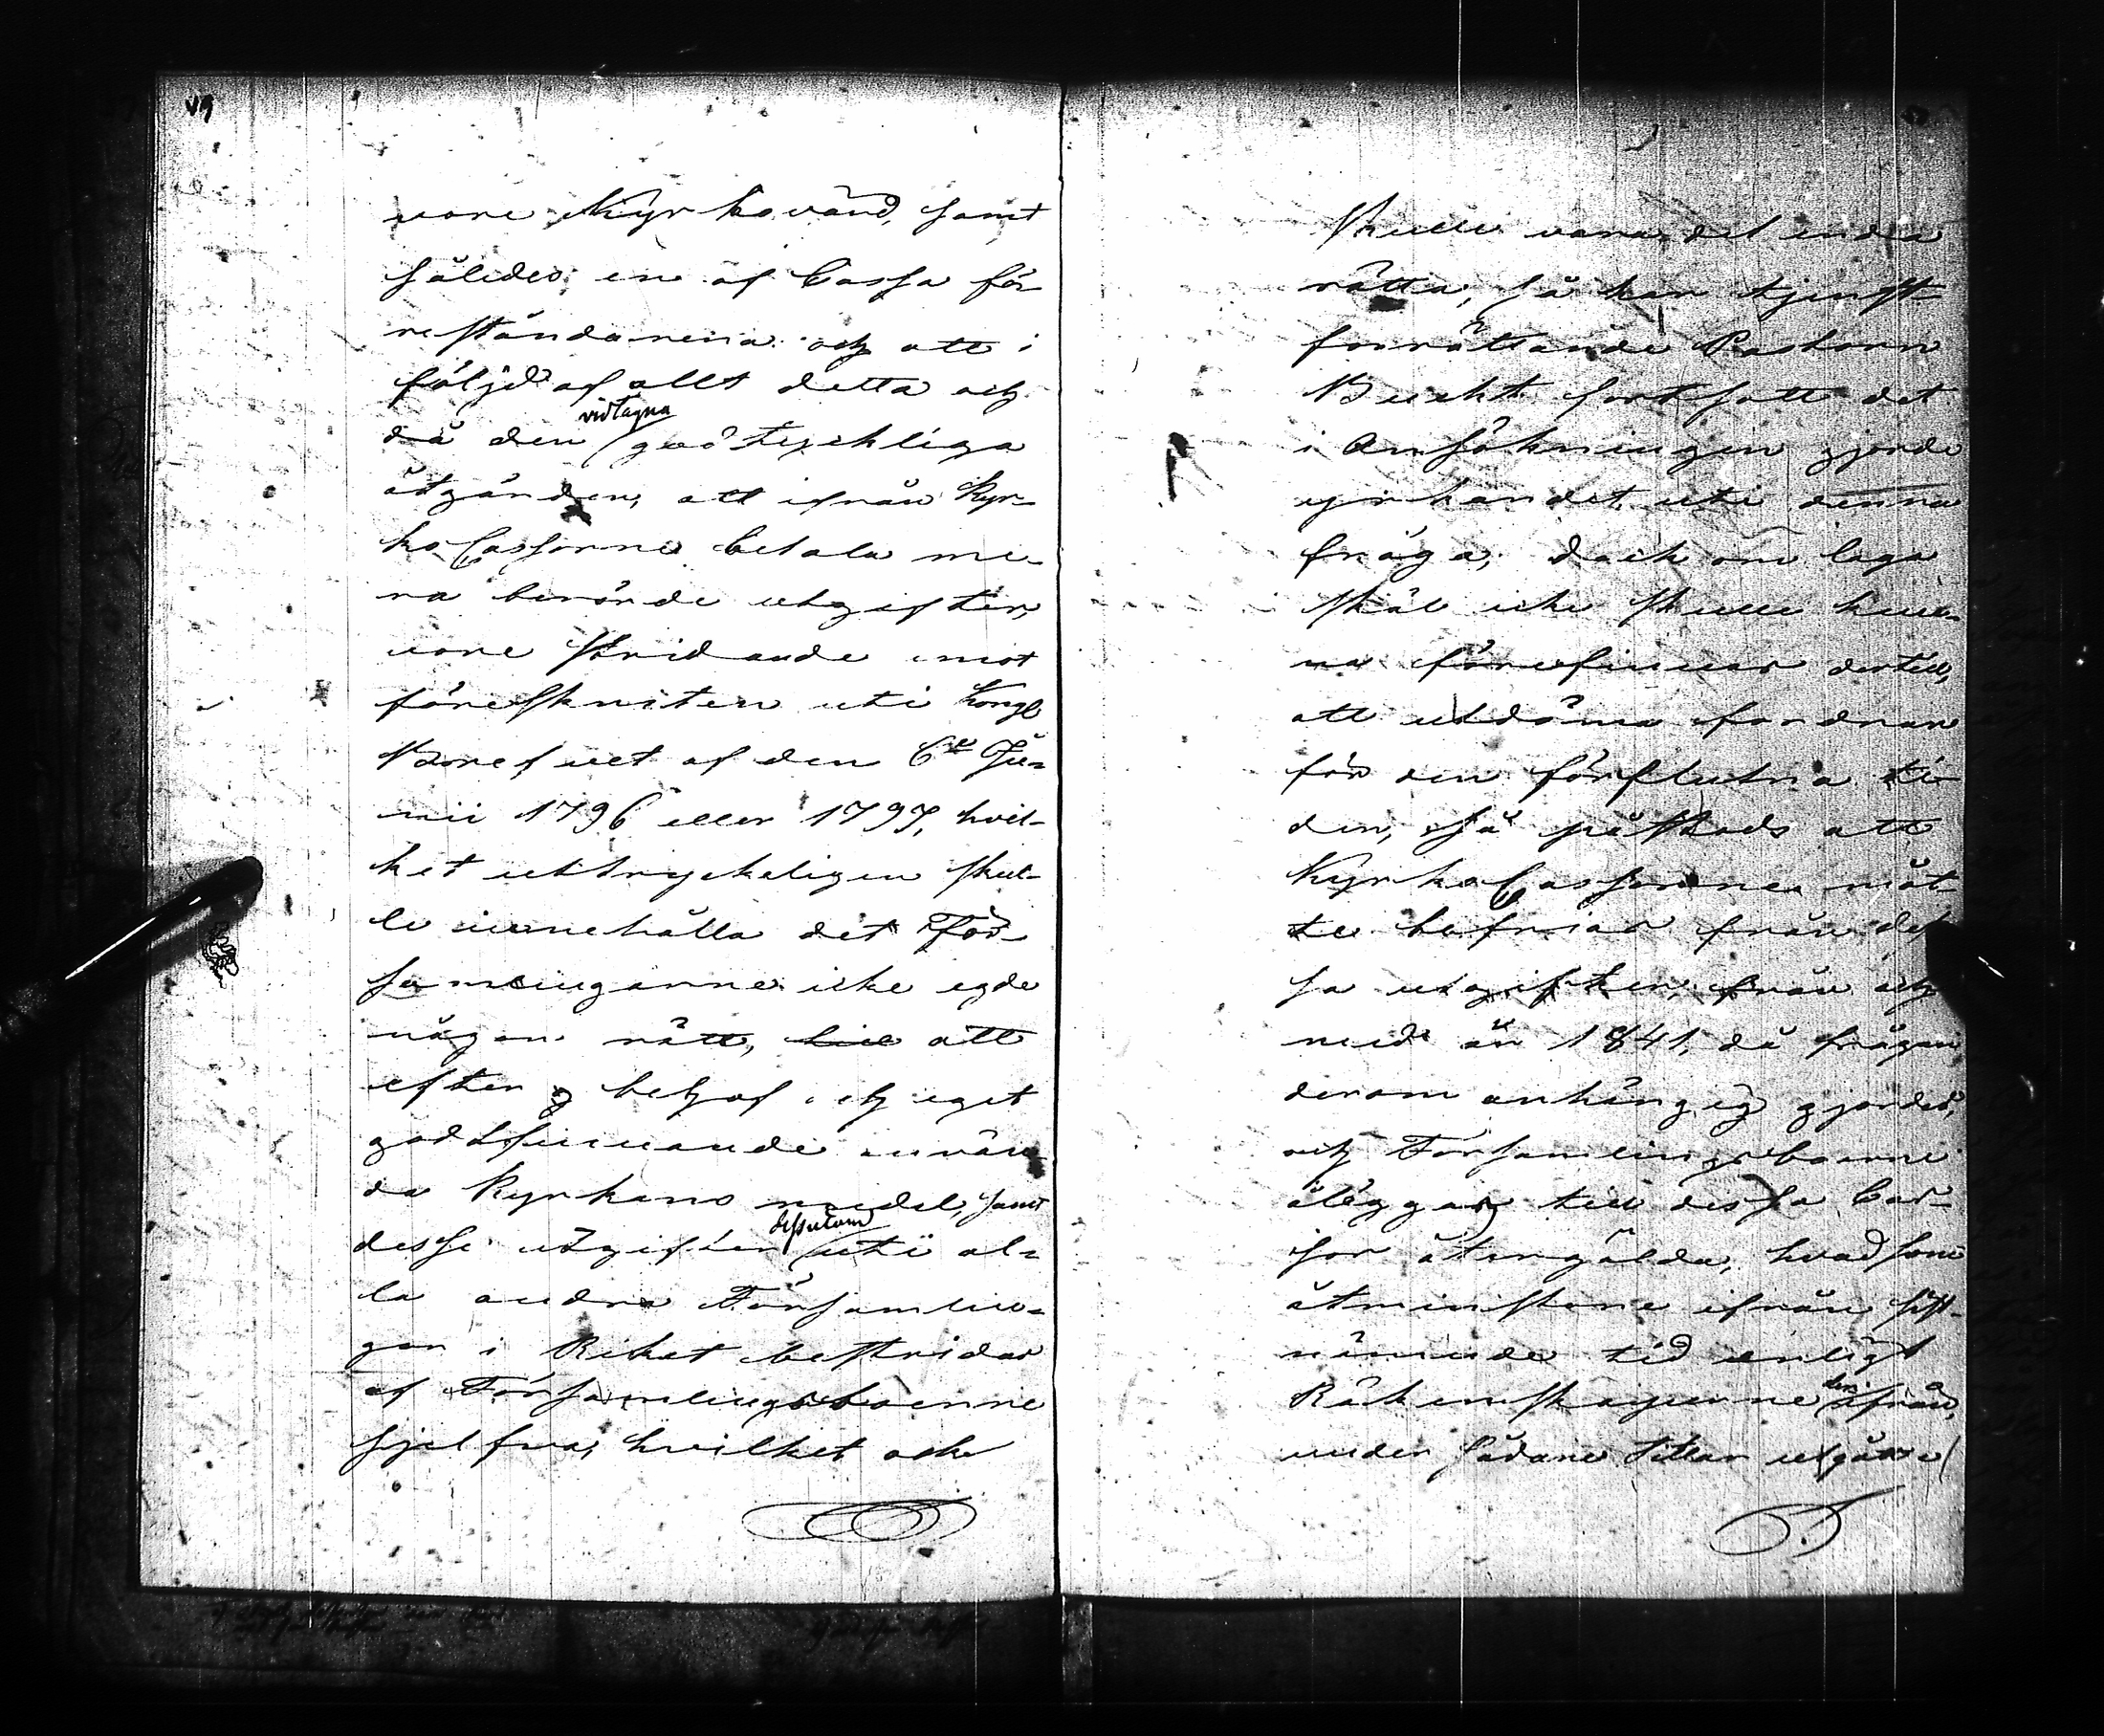 49
vore Kyrkovärd, samt
således en af Cassa fö-
reståndarena och att i
följd af allt detta och
vidtagna
då den godtyckliga
åtgärden, att ifrån Kyr-
ko Cassorne betala me-
ra berörde utgifter,
vore stridande emot
föreskriften uti Kongl
Brefvet af den 6te Ju-
nii 1796 eller 1797, hvil-
ket uttryckeligen skul-
le innehålla det För-
samlingarne icke egde
någon rätt, till att
efter behof och eget
godtfinnande använ-
da Kyrkans medel, samt
dessutom
desse utgifter uti al-
la andra Församlin-
gar i Riket bestridas
af Församlingsboerne
sjelfva, hvilket ock
skulle vara det enda
rätta, så har tjenst-
förrättande Pastorn
Bucht fortsatt det
i Ansökningen gjorde
yrkandet uti denna
fråga; dock om laga
skäl icke skulle kun-
na förefinnas dertill,
att utdöma fordran
för den förflutna ti-
den, så påstods att
Kyrko Cassorne måt-
te befrias från des-
sa utgifter från och
med år 1841, då frågan
derom anhängig gjordes,
och Församlingsboerne
åläggas till dessa Cas-
sor återgälda, hvad som
åtminstone ifrån sist-
nämnde tid enligt
der
Räkenskaperne ifrån,
under sådane titlar utgått